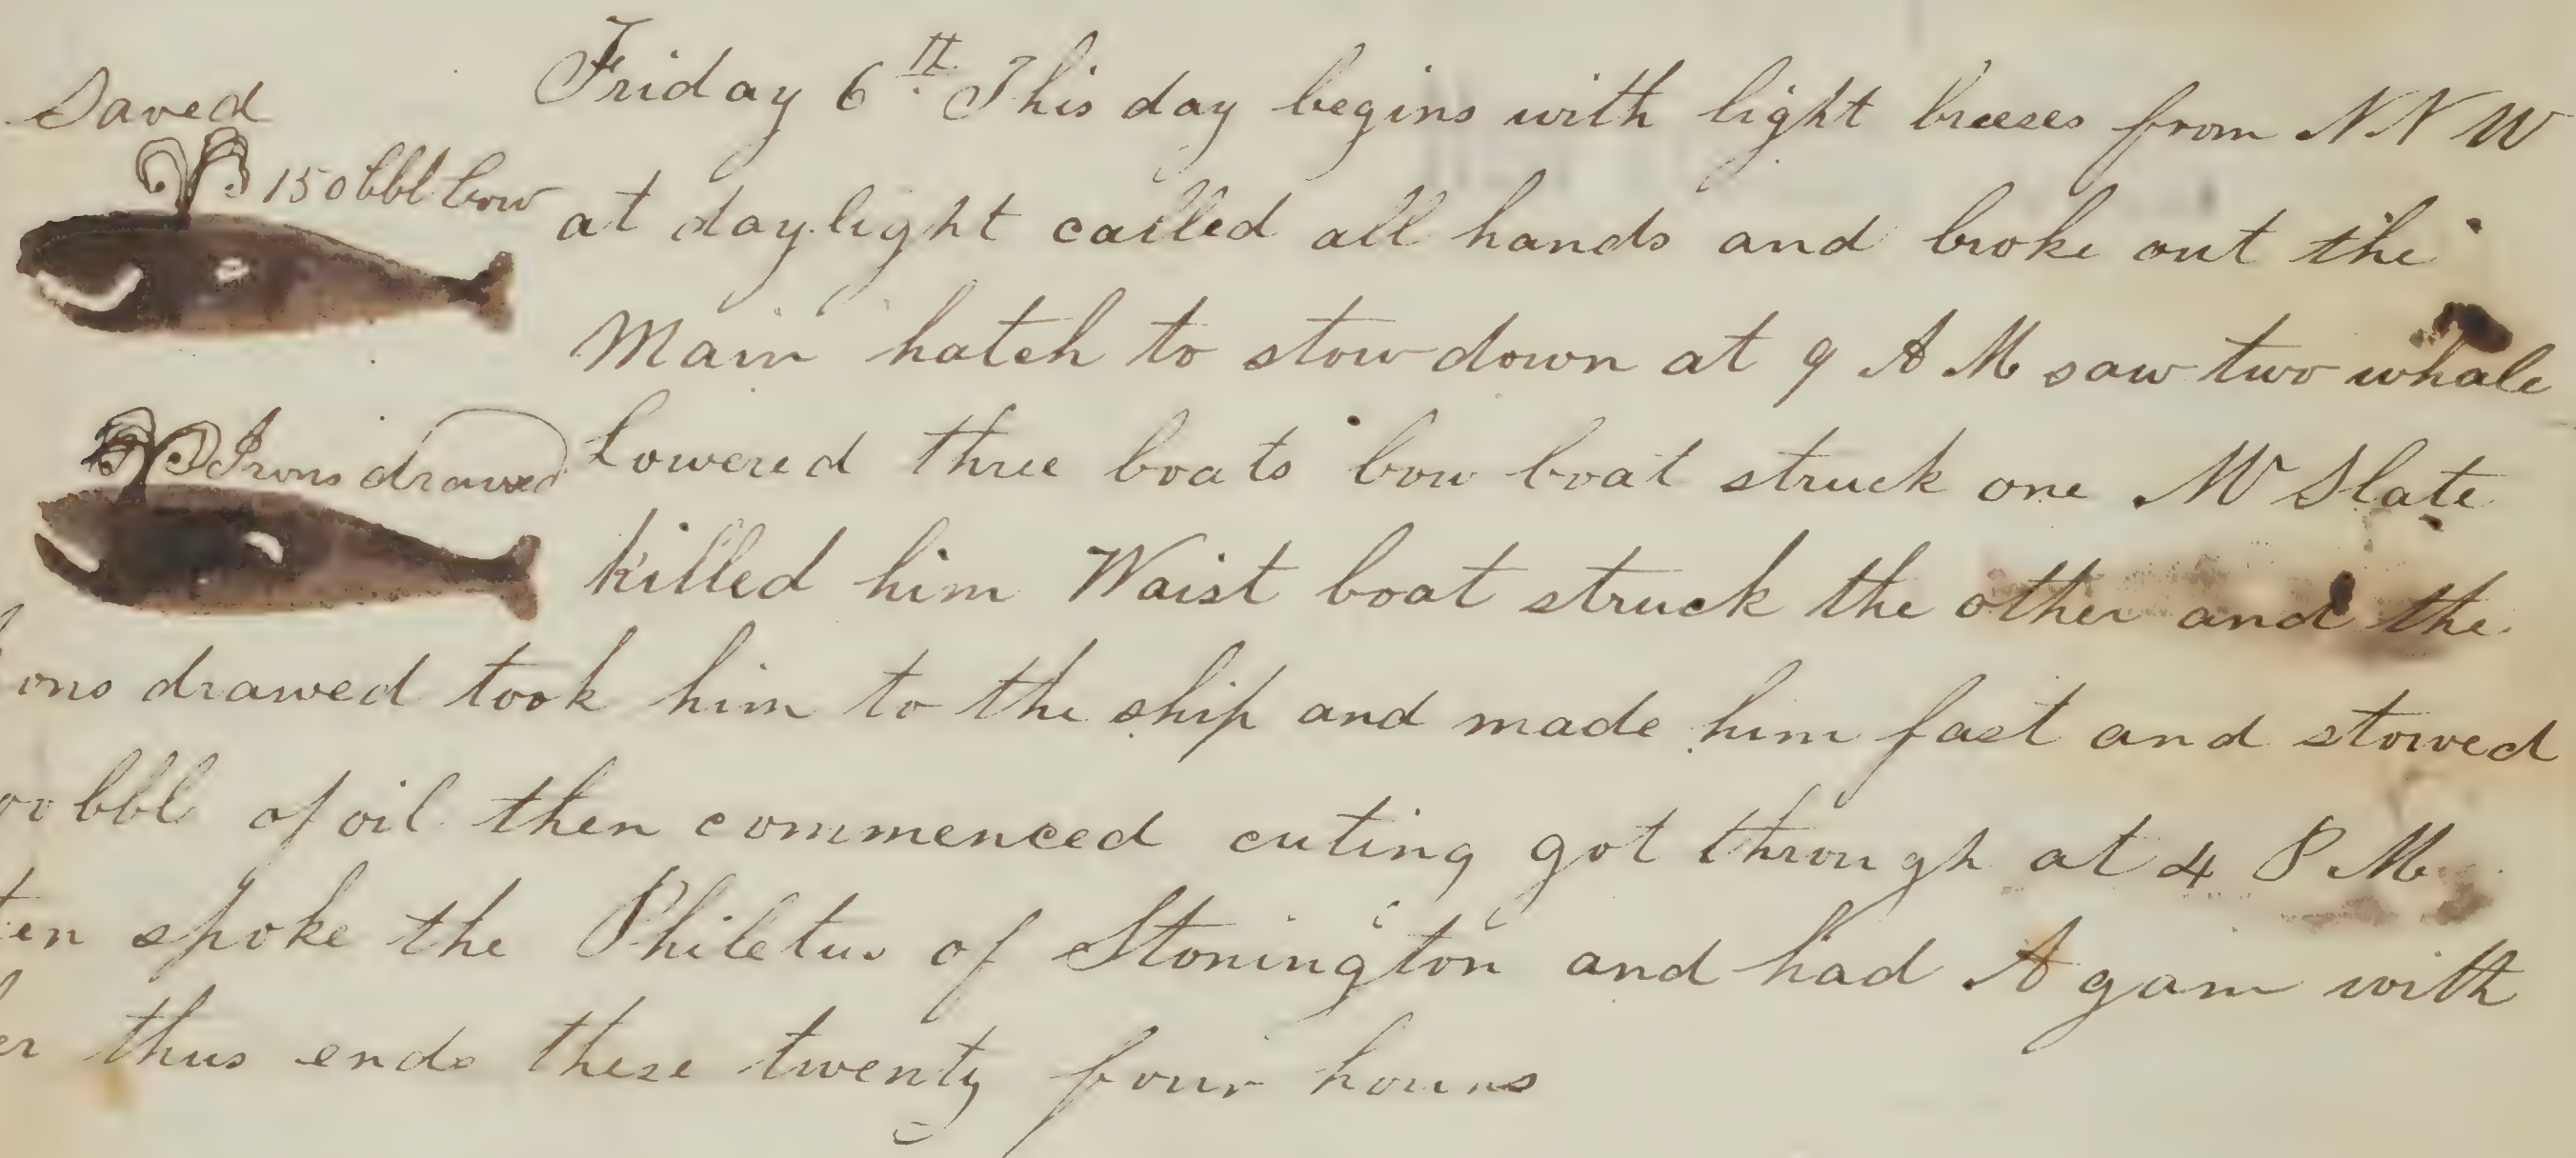 Saved
150 bbl bow
Irons drawed
Friday 6th This day begins with light breezes from N N W
at daylight called all hands and broke out the
Main hatch to stow down at 9 A M saw two whale
Lowered three boats bow boat struck one Mr Slate
killed him Waist boat struck the other and the
ons drawed took him to the ship and made him fast and stowed
bbl of oil then commenced cuting got through at 4 P M
en spoke the Philetus of Stonington and had A gam with
er thus ends these twenty four hours